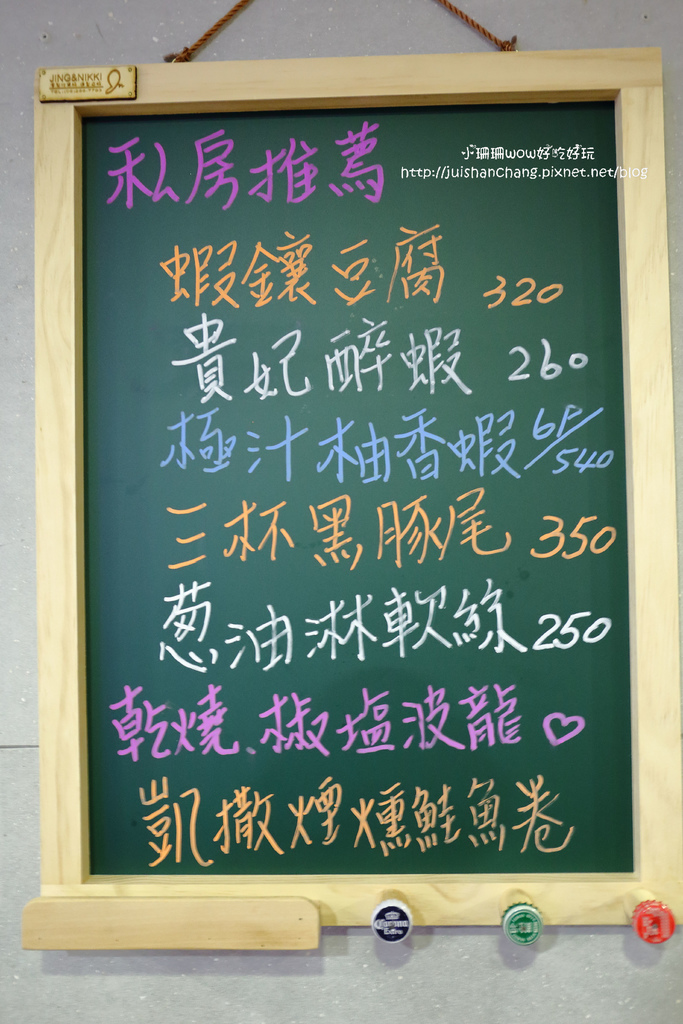 JING&NIKKI
小珊珊wow好吃好玩
http://juishanchang.pixnet.net/blog
私房推薦
蝦鑲豆腐 320
貴妃醉蝦 260
極汁柚香蝦 6P/540
三杯黑豚尾 350
葱油淋軟絲 250
乾燒、椒塩波龍♡
凱撒煙燻鮭魚卷
Corona
Extra